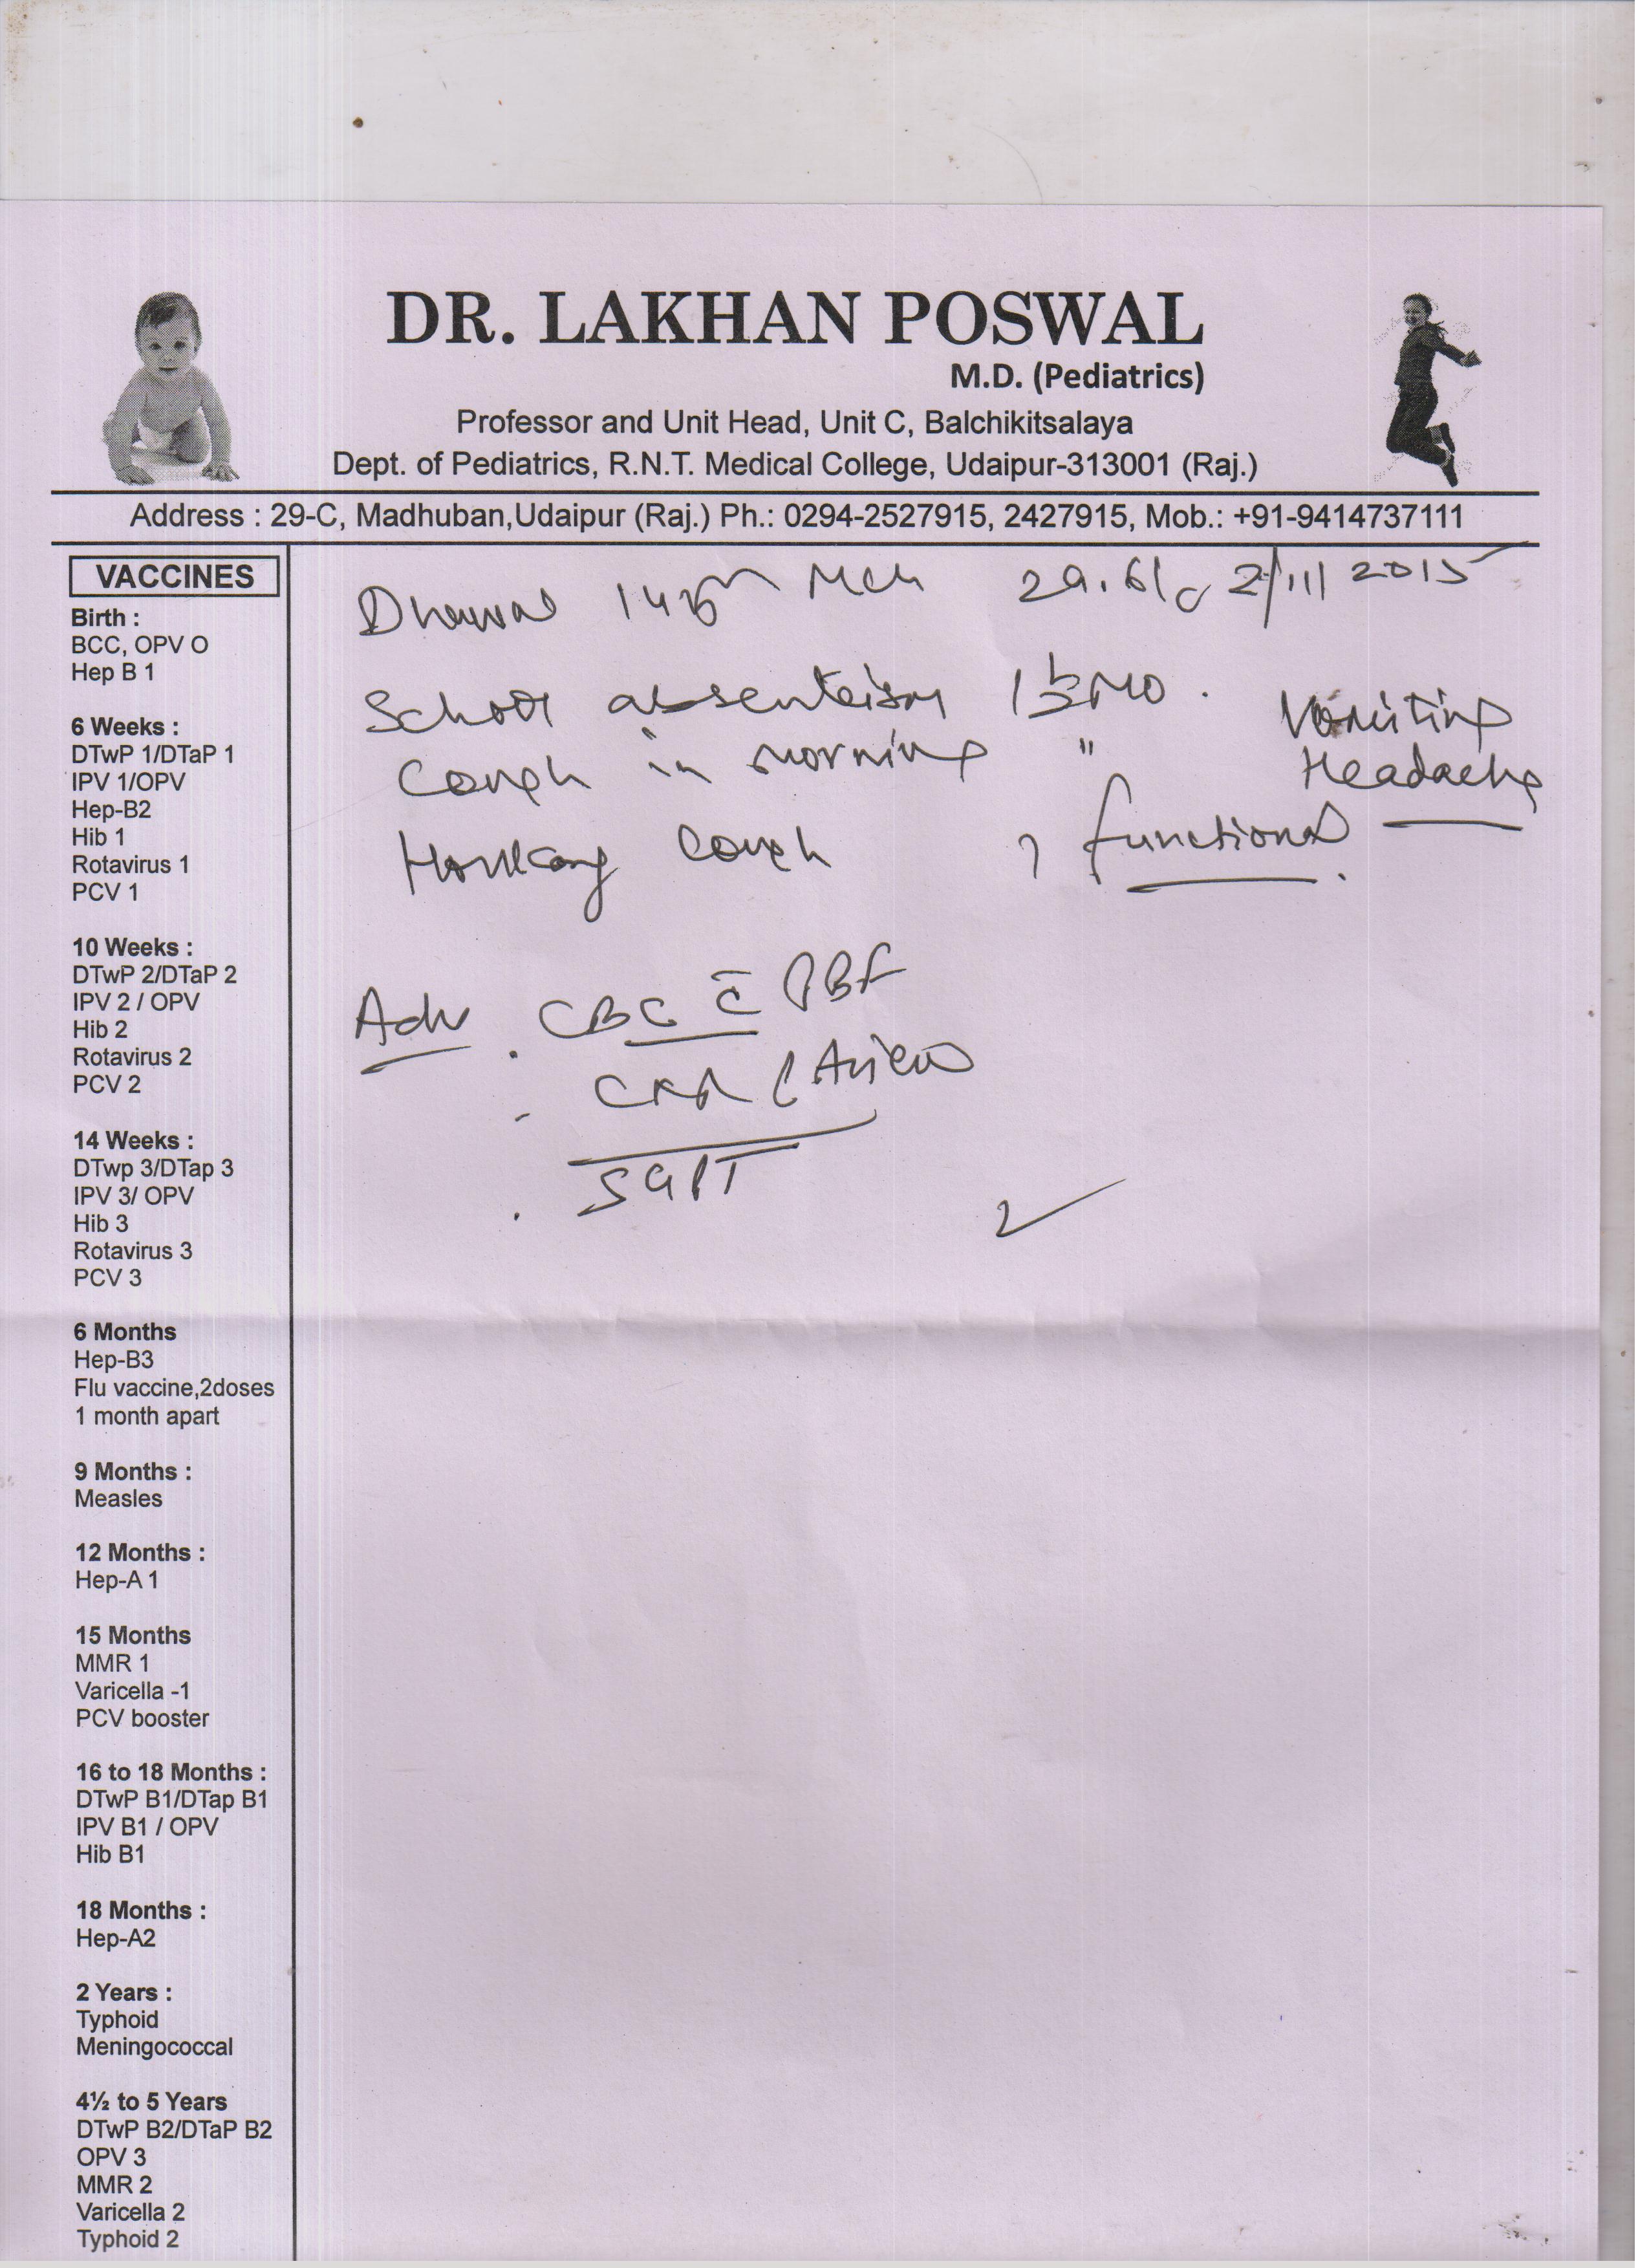 DR. LAKHAN POSWAL
M.D. (Pediatrics)
Professor and Unit Head, Unit C, Balchikitsalaya
Dept. of Pediatrics, R.N.T. Medical College, Udaipur-313001 (Raj.)
Address : 29-C, Madhuban,Udaipur (Raj.) Ph.: 0294-2527915, 2427915, Mob.: +91-9414737111
VACCINES
Birth :
BCC, OPV O
Hep B 1
6 Weeks :
DTwP 1/DTaP 1
IPV 1/OPV
Hep-B2
Hib 1
Rotavirus 1
PCV 1
10 Weeks :
DTwP 2/DTaP 2
IPV 2 / OPV
Hib 2
Rotavirus 2
PCV 2
14 Weeks :
DTwp 3/DTap 3
IPV 3/ OPV
Hib 3
Rotavirus 3
PCV 3
6 Months
Hep-B3
Flu vaccine,2doses
1 month apart
9 Months :
Measles
12 Months :
Hep-A 1
15 Months
MMR 1
Varicella -1
PCV booster
16 to 18 Months :
DTwP B1/DTap B1
IPV B1 / OPV
Hib B1
18 Months :
Hep-A2
2 Years :
Typhoid
Meningococcal
4½ to 5 Years
DTwP B2/DTaP B2
OPV 3
MMR 2
Varicella 2
Typhoid 2
MCh 29.6 2/11/2015
School absenteism Vomiting
Cough in morning " Headache
cough ? functional
Adv . CBC c̄ PBF
. CXR (AView
. SGPT